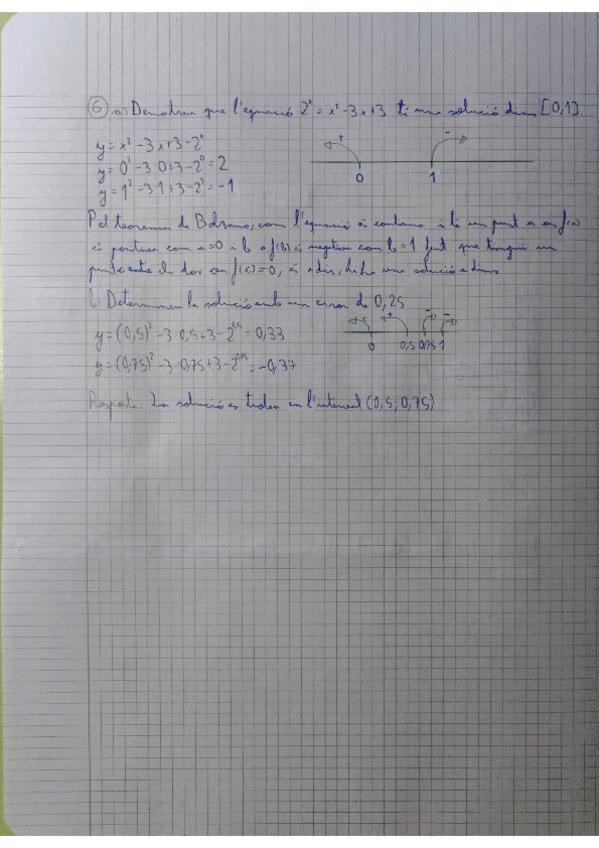 6 a) Demostreu que l'equació 2ˣ = x² - 3x + 3 té una solució dins [0,1].
y = x² - 3x + 3 - 2ˣ
y = 0² - 3·0 + 3 - 2⁰ = 2
y = 1² - 3·1 + 3 - 2¹ = -1
+ -
0 1
Pel teorema de Bolzano, com l'equació és contínua i té un punt a on f(a)
és positiva com a=0 i b f(b) és negativa com b=1 que tingui un
punt entre els dos on f(c)=0, és a dir, hi ha una solució a dins
b. Determineu la solució amb un error de 0,25
y = (0,5)² - 3·0,5 + 3 - 2^0,5 = 0,33
y = (0,75)² - 3·0,75 + 3 - 2^0,75 = -0,37
+ + - -
0 0,5 0,75 1
Resposta: La solució es troba en l'interval (0,5; 0,75)